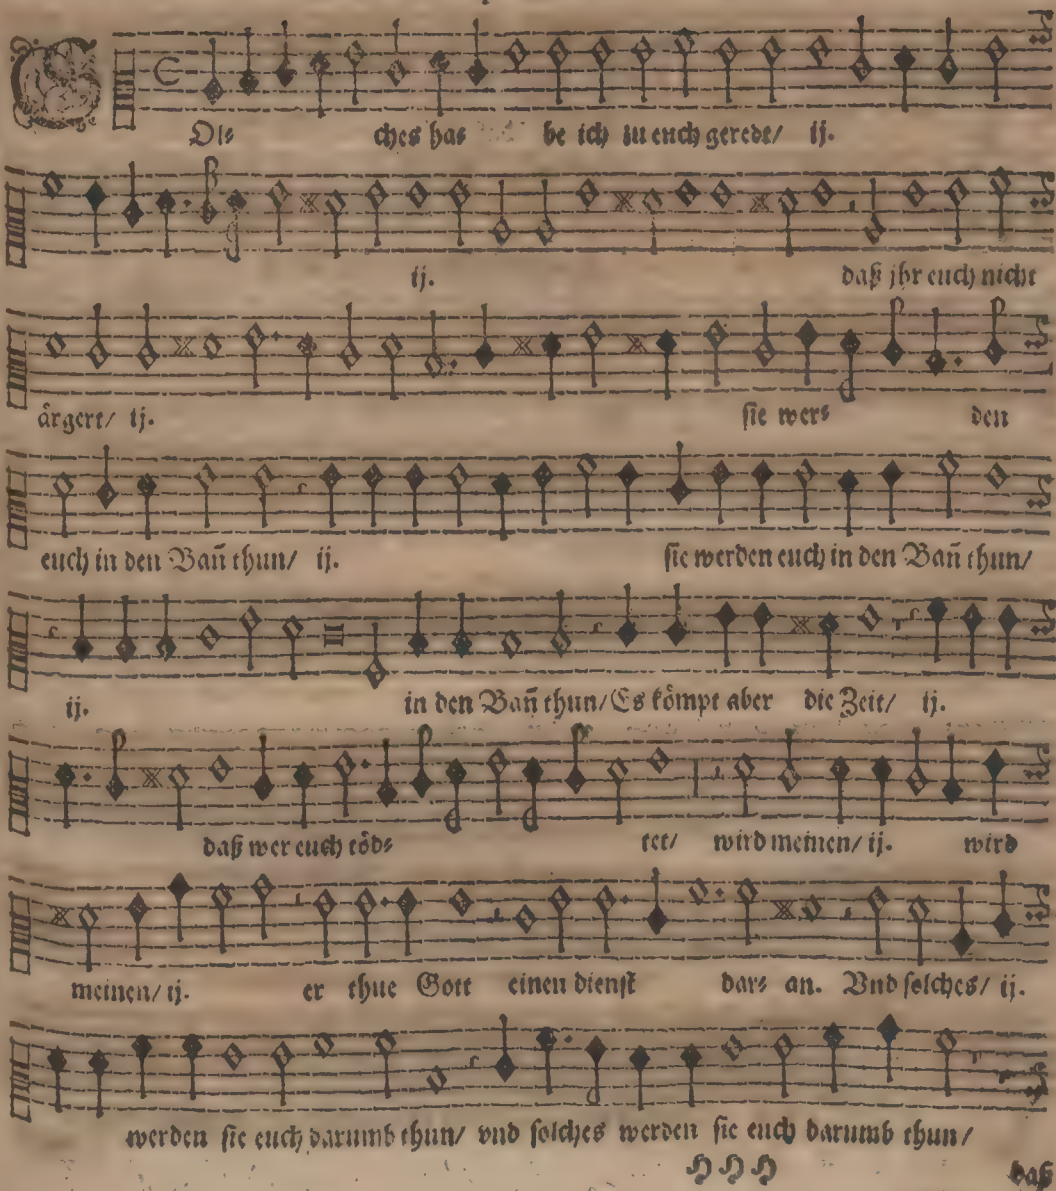 SOls ches has be ich zu euch geredt/ ij.
ij. daß jhr euch nicht
ärgert/ ij. sie wers den
euch in den Bañ thun/ ij. sie werden euch in den Bañ thun/
ij. in den Bañ thun/ Es kömpt aber die Zeit/ ij.
daß wer euch töds tet/ wird meinen/ ij. wird
meinen/ ij. er thue Gott einen dienst dars an. Vnd solches/ ij.
werden sie euch darumb thun/ vnd solches werden sie euch darumb thun/
H H H daß